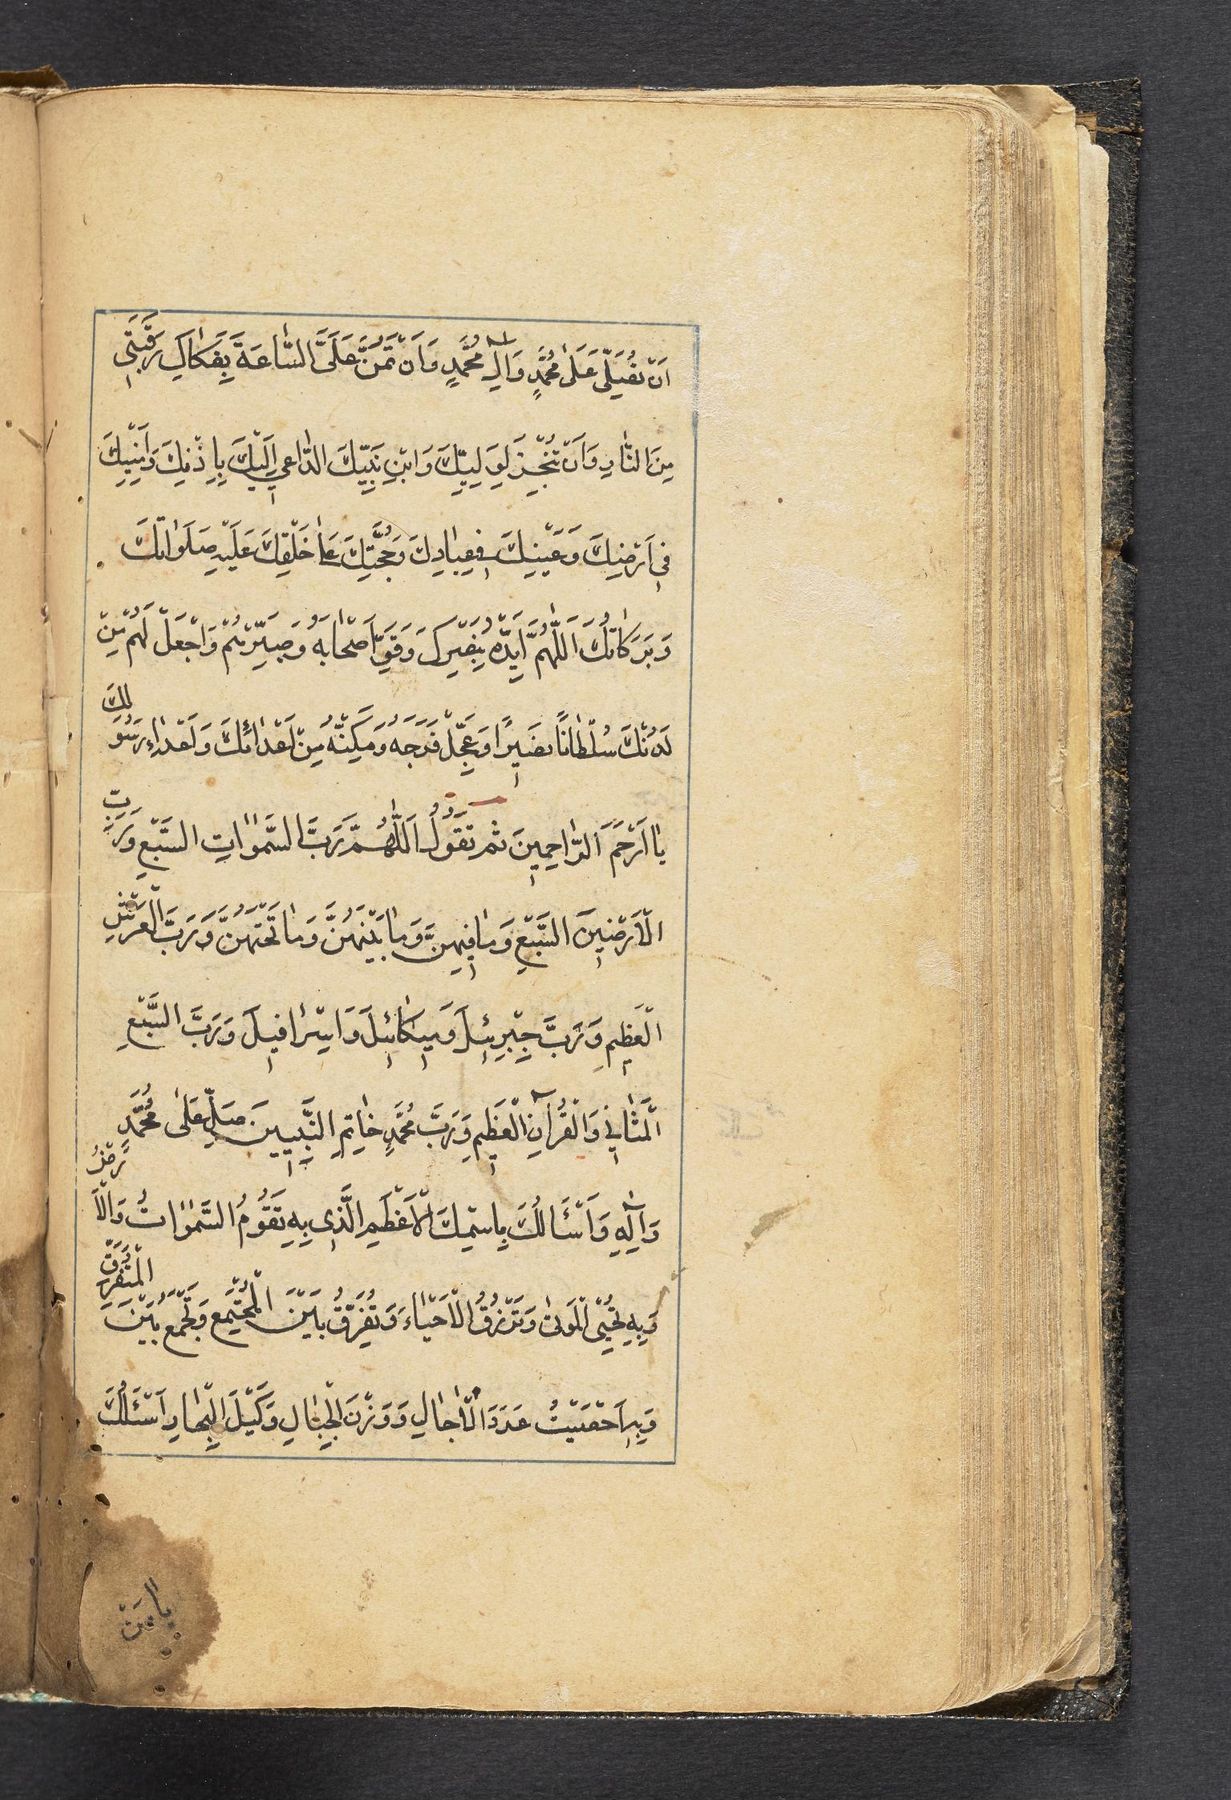 اَنْ تُصَلِّيَ عَلىٰ مُحَمَّدٍ وَاٰلِ مُحَمَّدٍ وَاَنْ تَمُنَّ عَلَىَّ السّٰاعَةَ بِفَكٰاكِ رَقَبَتِي
مِنَ النّٰارِ وَاَنْ تُنْجِزَ لِوَلِيِّكَ وَابْنِ نَبِيِّكَ الدّٰاعِي اِلَيْكَ بِاِذْنِكَ وَاَمِينِكَ
فِي اَرْضِكَ وَعَيْنِكَ فِي عِبٰادِكَ وَحُجَّتِكَ عَلىٰ خَلْقِكَ عَلَيْهِ صَلَوٰاتُكَ
وَبَرَكٰاتُكَ اَللّٰهُمَّ اَيِّدْهُ بِنَصْرِكَ وَقَوِّ اَصْحٰابَهُ وَصَبِّرْهُمْ وَاجْعَلْ لَهُمْ مِنْ
لَدُنْكَ سُلْطٰانًا نَصِيرًا وَعَجِّلْ فَرَجَهُ وَمَكِّنْهُ مِنْ اَعْدٰائِكَ وَاَعْدٰاءِ رَسُولِكَ
يٰا اَرْحَمَ الرّٰاحِمِينَ ثم تَقُولُ اَللّٰهُمَّ رَبَّ السَّمٰوٰاتِ السَّبْعِ وَرَبَّ
الْاَرَضِينَ السَّبْعِ وَمٰا فِيهِنَّ وَمٰا بَيْنَهُنَّ وَمٰا تَحْتَهُنَّ وَرَبَّ الْعَرْشِ
الْعَظِيمِ وَرَبَّ جِبْرِئِيلَ وَمِيكٰائِيلَ وَاِسْرٰافِيلَ وَرَبَّ السَّبْعِ
الْمَثٰانِي وَالْقُرْآنِ الْعَظِيمِ وَرَبَّ مُحَمَّدٍ خٰاتِمِ النَّبِيِّينَ صَلِّ عَلىٰ مُحَمَّدٍ
وَاٰلِهِ وَاَسْئَالُكَ بِاسْمِكَ الْاَعْظَمِ الَّذِي بِهِ تَقُومُ السَّمٰوٰاتُ وَالْاَرْضُ
وَبِهِ تُحْيِي الْمَوْتىٰ وَتَرْزُقُ الْاَحْيٰاءَ وَتُفَرِّقُ بَيْنَ الْمُجْتَمِعِ وَتَجْمَعُ بَيْنَ الْمُتَفَرِّقِ
وَبِهِ اَحْصَيْتَ عَدَدَ الْاٰجٰالِ وَوَزْنَ الْجِبٰالِ وَكَيْلَ الْبِحٰارِ اَسْئَلُكَ
يا من